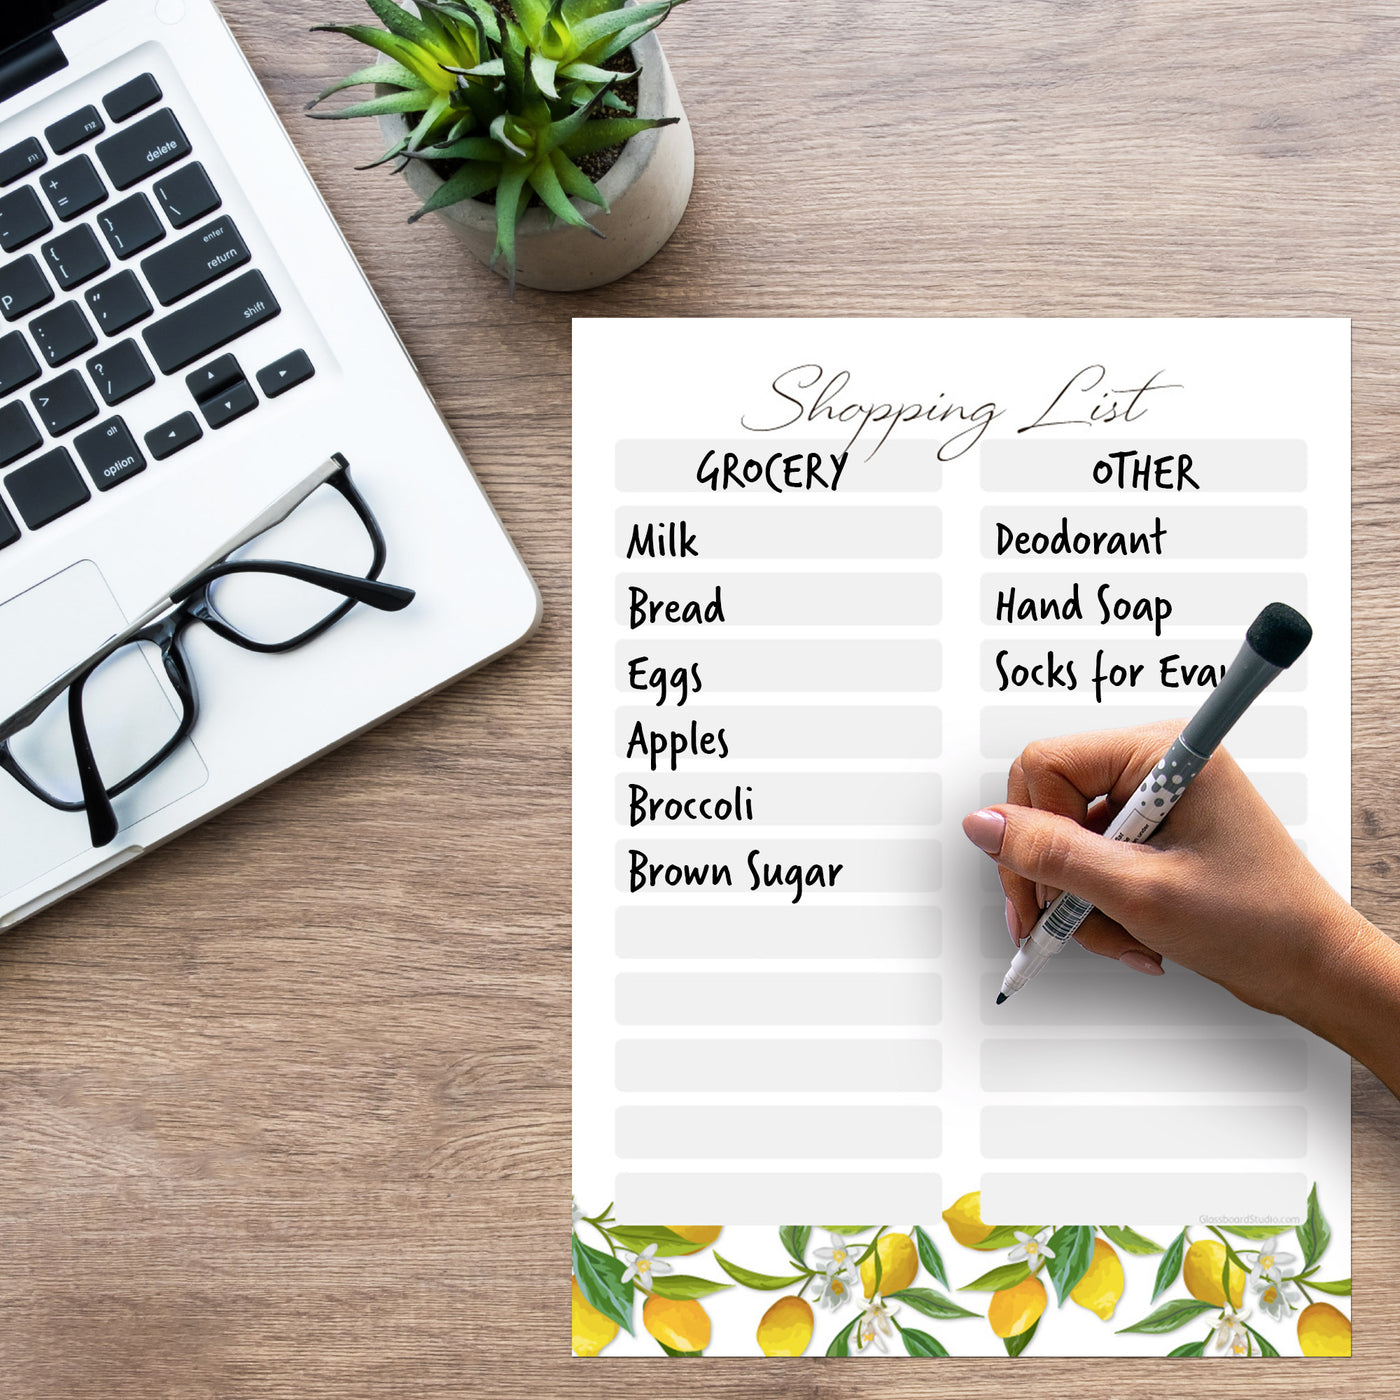 F11
F12
delete
+
=
-
}
]
|
\
{
[
enter
return
P
"
'
:
;
shift
?
/
>
.
alt
option
Shopping List
GROCERY
OTHER
Milk
Deodorant
Bread
Hand Soap
Eggs
Socks for Evan
Apples
Broccoli
Brown Sugar
GlassboardStudio.com